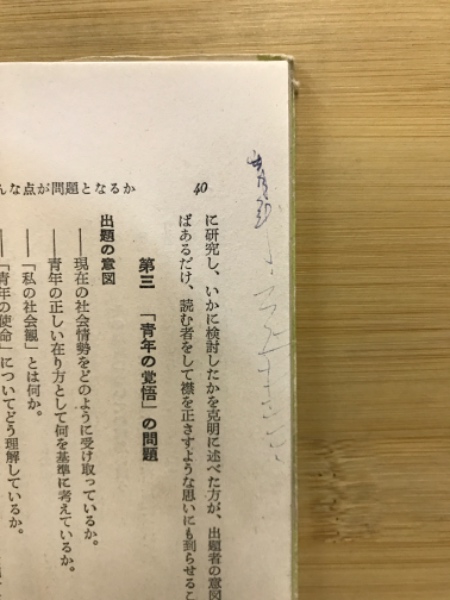 んな点が問題となるか
40
に研究し、いかに検討したかを克明に述べた方が、出題者の意図
ばあるだけ、読む者をして襟を正さすような思いにも到らせるこ
第三 「青年の覚悟」の問題
出題の意図
――現在の社会情勢をどのように受け取っているか。
――青年の正しい在り方として何を基準に考えているか。
――「私の社会観」とは何か。
――「青年の使命」についてどう理解しているか。